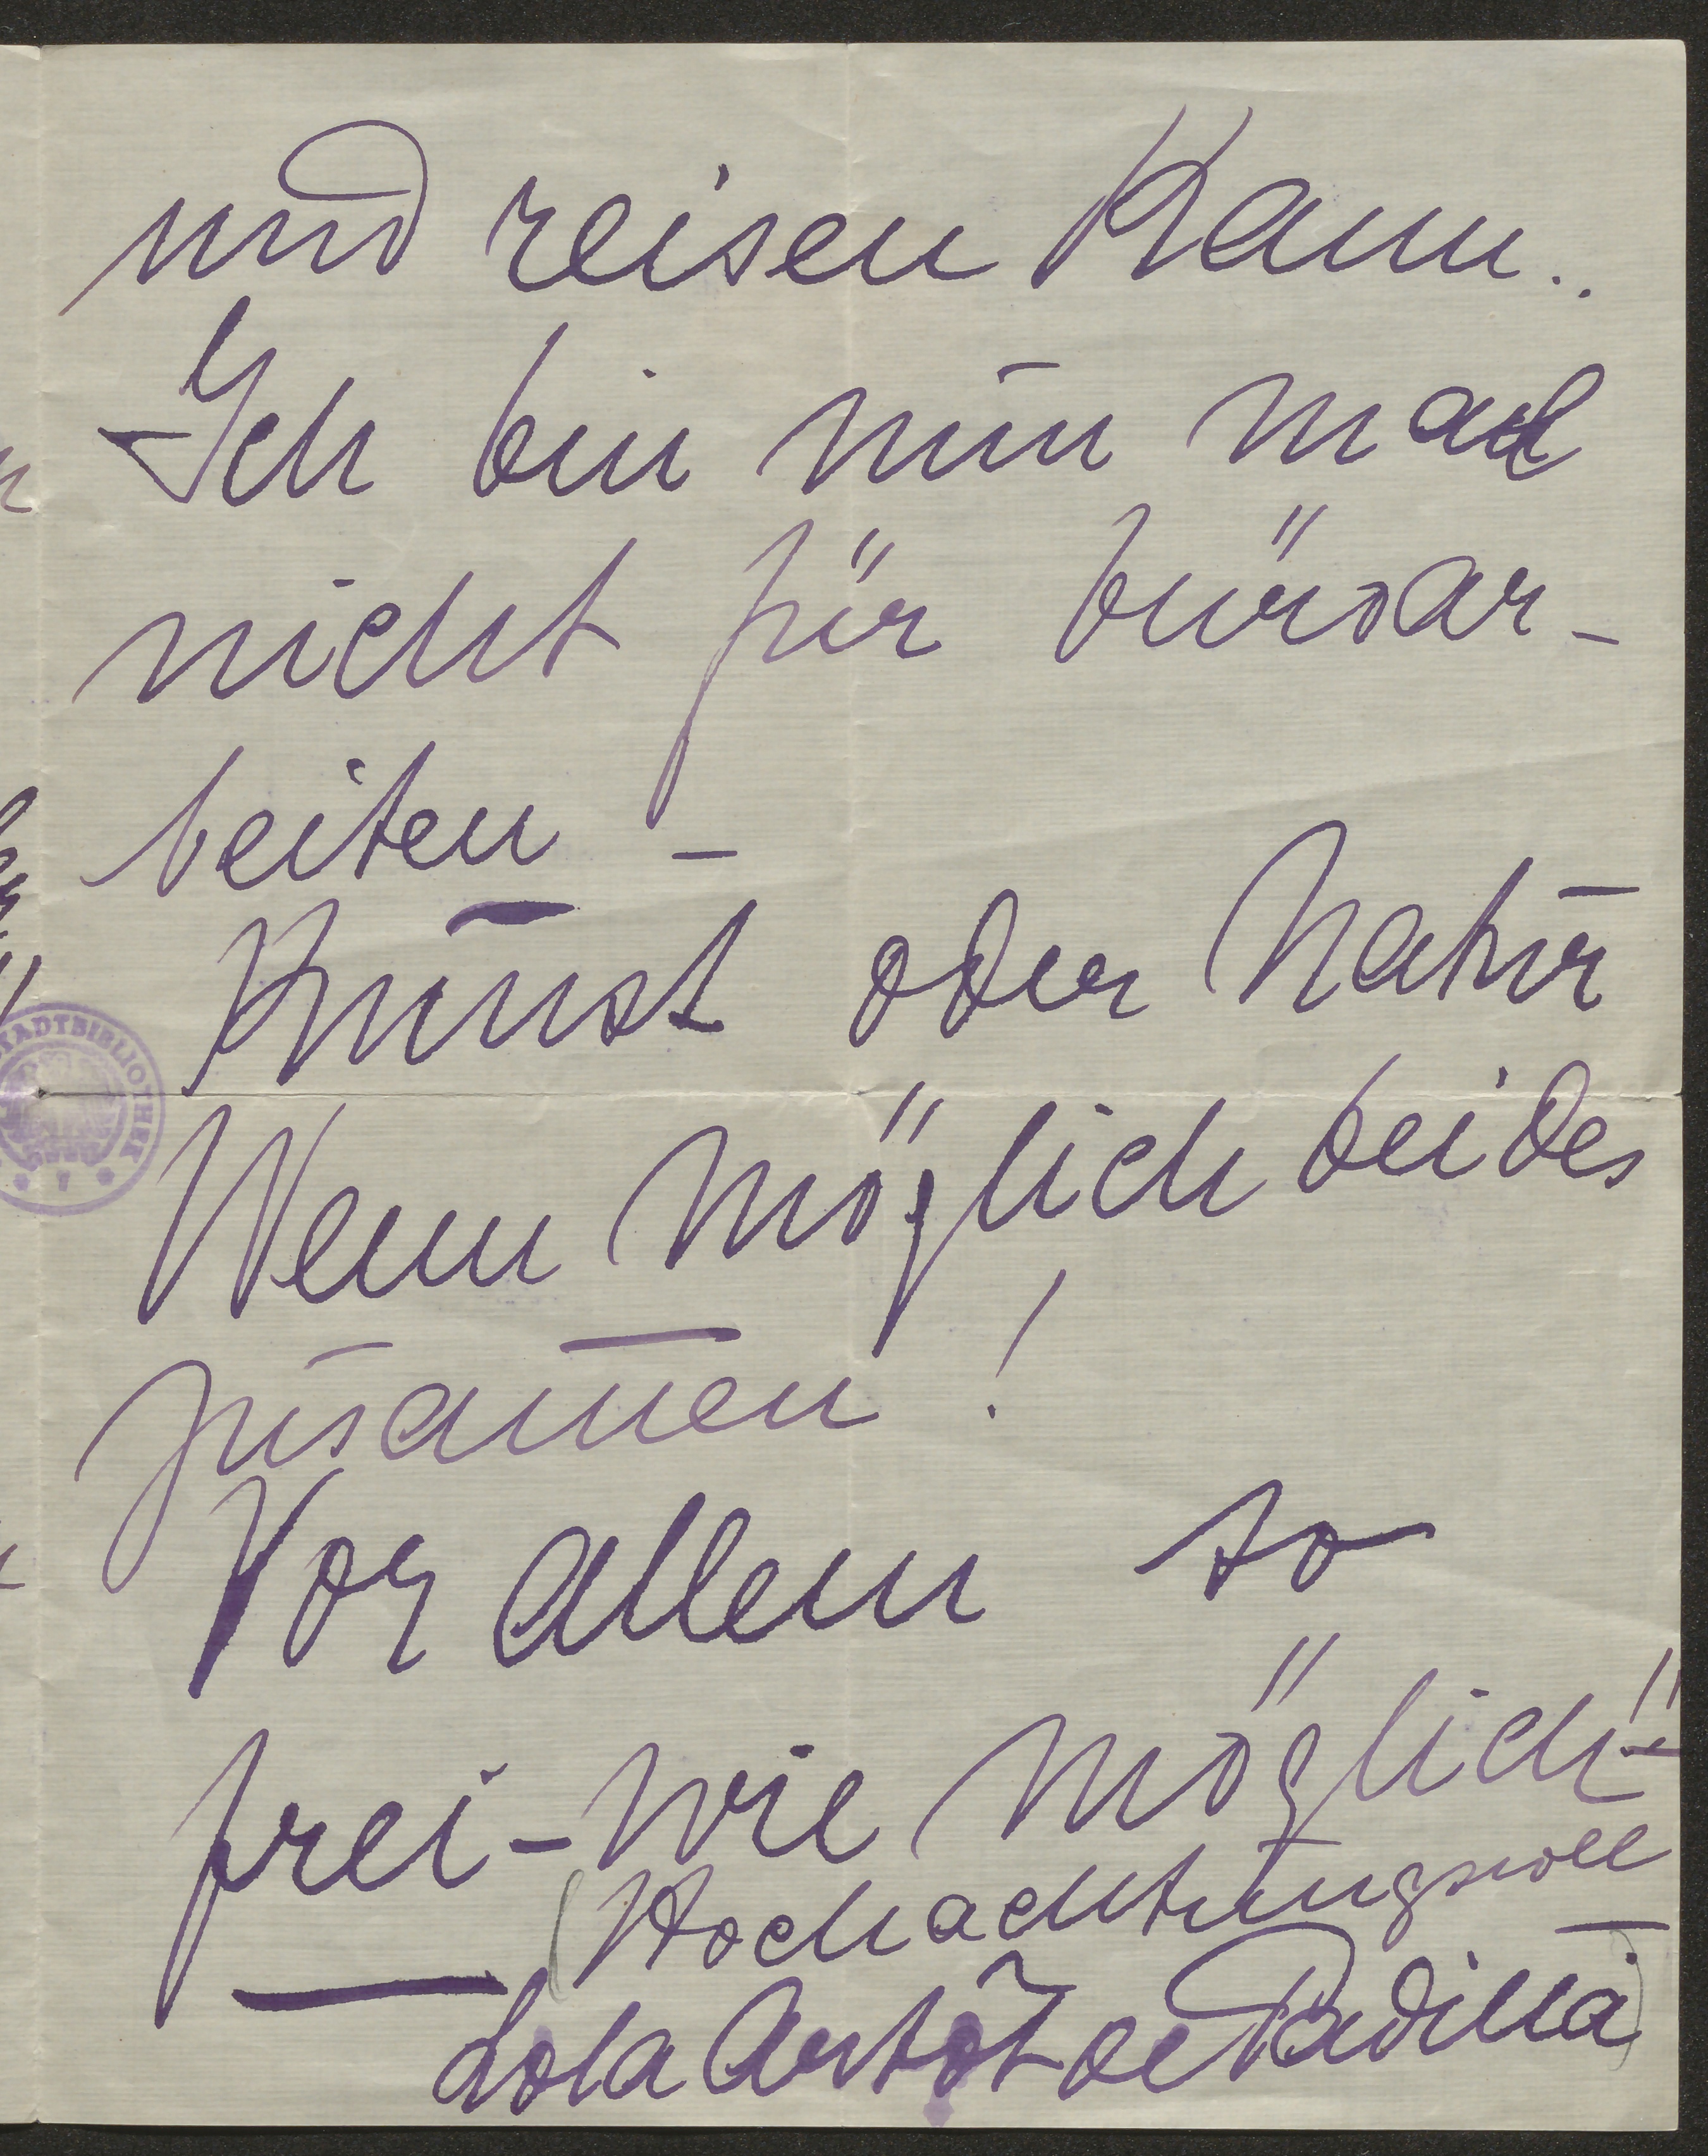 und reisen Kann..
Ich bin nun mal
nicht für bürsar-
beiten –
Kunst oder Natur
Wenn möglich beides
zusam̅en!
Vor allem so
frei – wie möglich!!
Hochachtungsvoll
Lola Artôt de Padilla
STADTBIBLIOTHEK